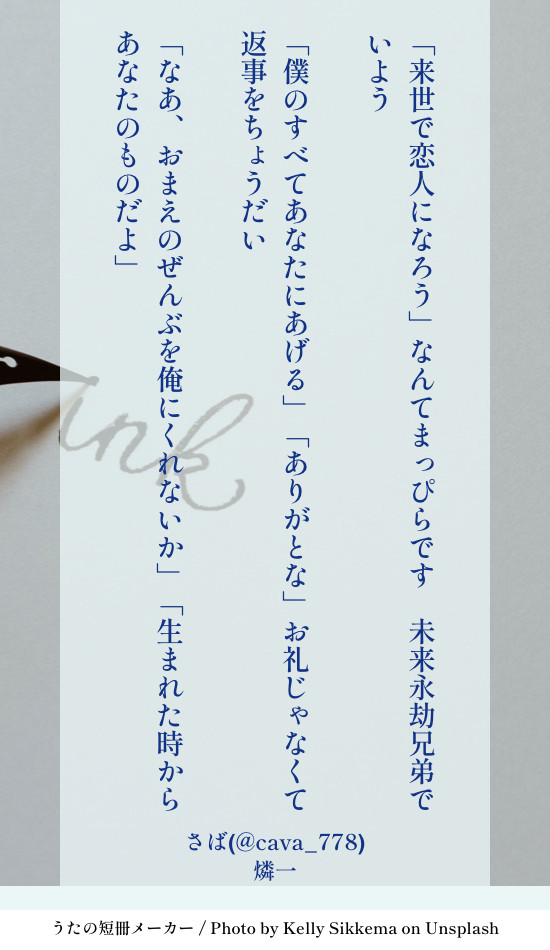 「来世で恋人になろう」なんてまっぴらです　未来永劫兄弟で
いよう
「僕のすべてあなたにあげる」「ありがとな」お礼じゃなくて
返事をちょうだい
「なあ、おまえのぜんぶを俺にくれないか」「生まれた時から
あなたのものだよ」
ink
さば(@cava_778)
燐一
うたの短冊メーカー / Photo by Kelly Sikkema on Unsplash